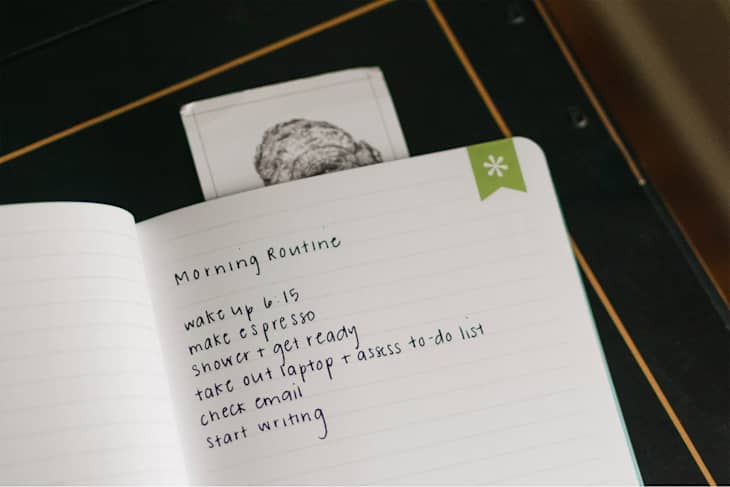 Morning Routine
wake up 6:15
make espresso
shower + get ready
take out laptop + assess to-do list
check email
start writing